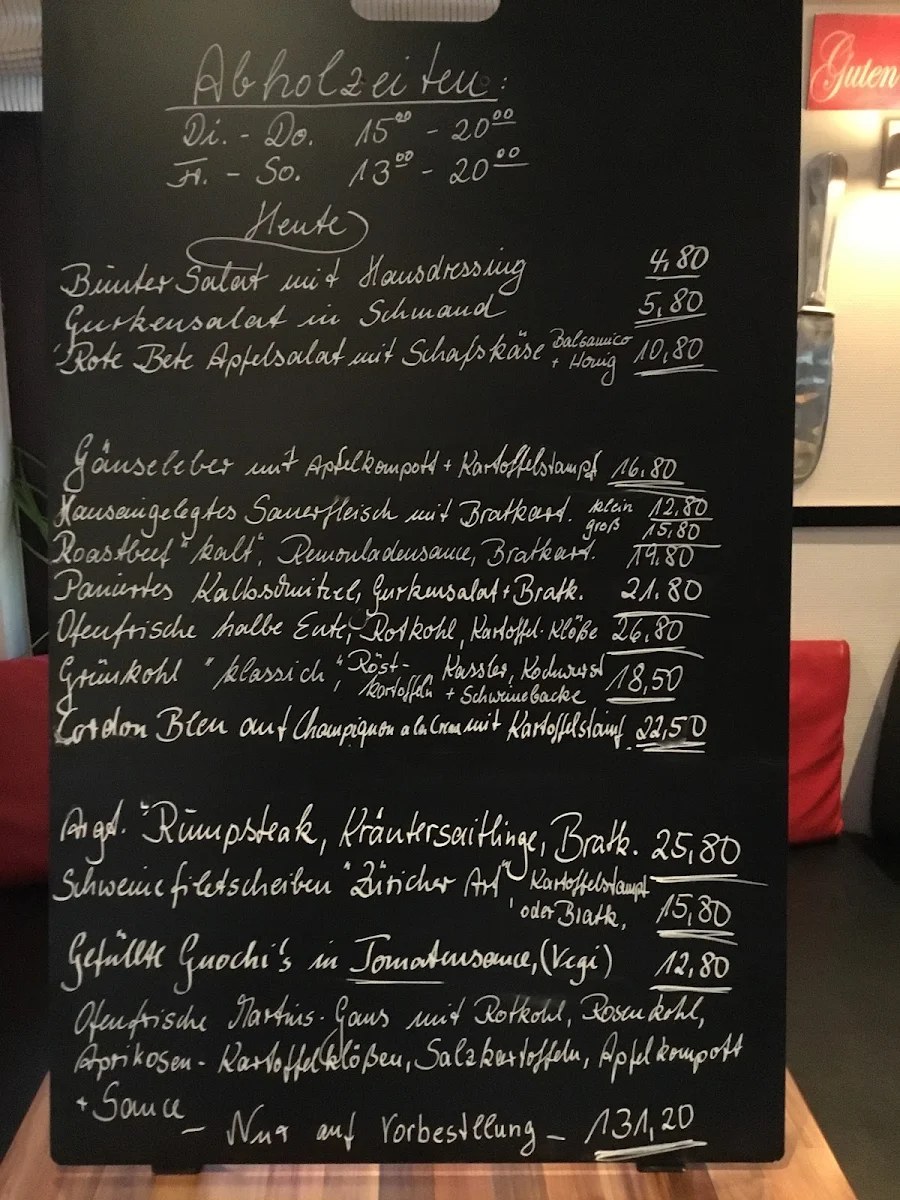 Abholzeiten:
Di. - Do. 15⁰⁰ - 20⁰⁰
Fr. - So. 13⁰⁰ - 20⁰⁰
Heute
Bunter Salat mit Hausdressing 4,80
Gurkensalat in Schmand 5,80
Rote Bete Apfelsalat mit Schafskäse Balsamico + Honig 10,80
Gänseleber mit Apfelkompott + Kartoffelstampf 16,80
Hauseingelegtes Sauerfleisch mit Bratkart. klein 12,80
groß 15,80
Roastbeef "kalt", Remouladensauce, Bratkart. 19,80
Paniertes Kalbschnitzel, Gurkensalat + Bratk. 21.80
Ofenfrische halbe Ente, Rotkohl, Kartoffel-Klöße 26,80
Grünkohl "klassich", Röst- Kassler, Kochwurst 18,50
kartoffeln + Schweinebacke
Cordon Bleu auf Champignon a la Crem mit Kartoffelstampf 22,50
Argt. Rumpsteak, Kräutersaitlinge, Bratk. 25,80
Schweinefiletscheiben "Züricher Art" Kartoffelstampf
oder Bratk, 15,80
Gefüllte Gnochi's in Tomatensauce, (Vegi) 12,80
Ofenfrische Martins-Gans mit Rotkohl, Rosenkohl,
Aprikosen-Kartoffelklößen, Salzkartoffeln, Apfelkompott
+ Sauce
- Nur auf Vorbestllung - 131,20
Guten